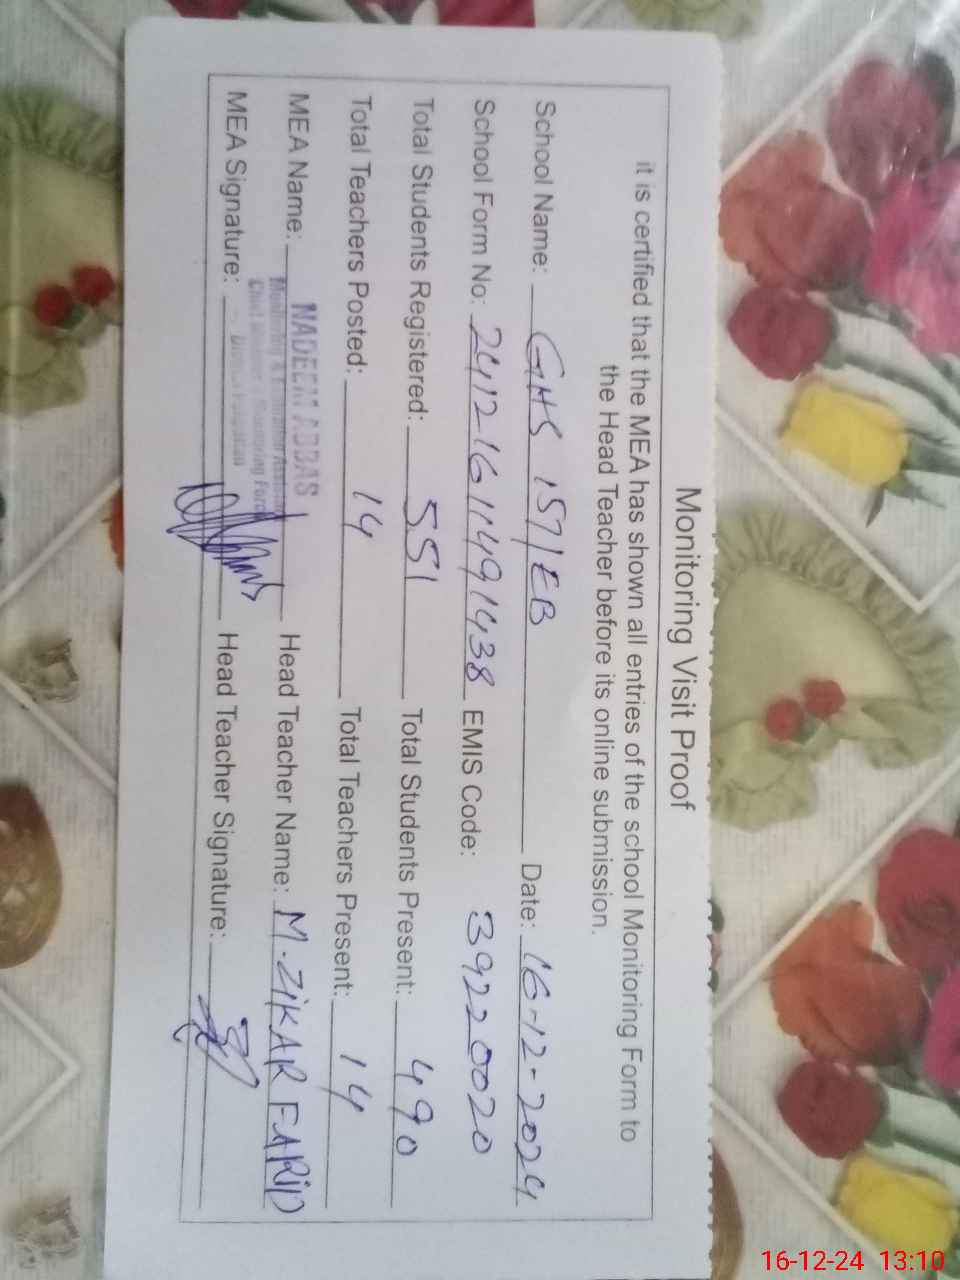 Monitoring Visit Proof
it is certified that the MEA has shown all entries of the school Monitoring Form to
the Head Teacher before its online submission.
School Name: GHS 157/EB Date: 16-12-2024
School Form No: 24121611491438 EMIS Code: 39220020
Total Students Registered: 551 Total Students Present: 490
Total Teachers Posted: 14 Total Teachers Present: 14
NADEEM ABBAS
MEA Name: Monitoring & Evaluation Assistant Head Teacher Name: M. ZIKAR FARID
Chief Minister's Monitoring Force
MEA Signature: District Pakpattan Head Teacher Signature:
16-12-24 13:10